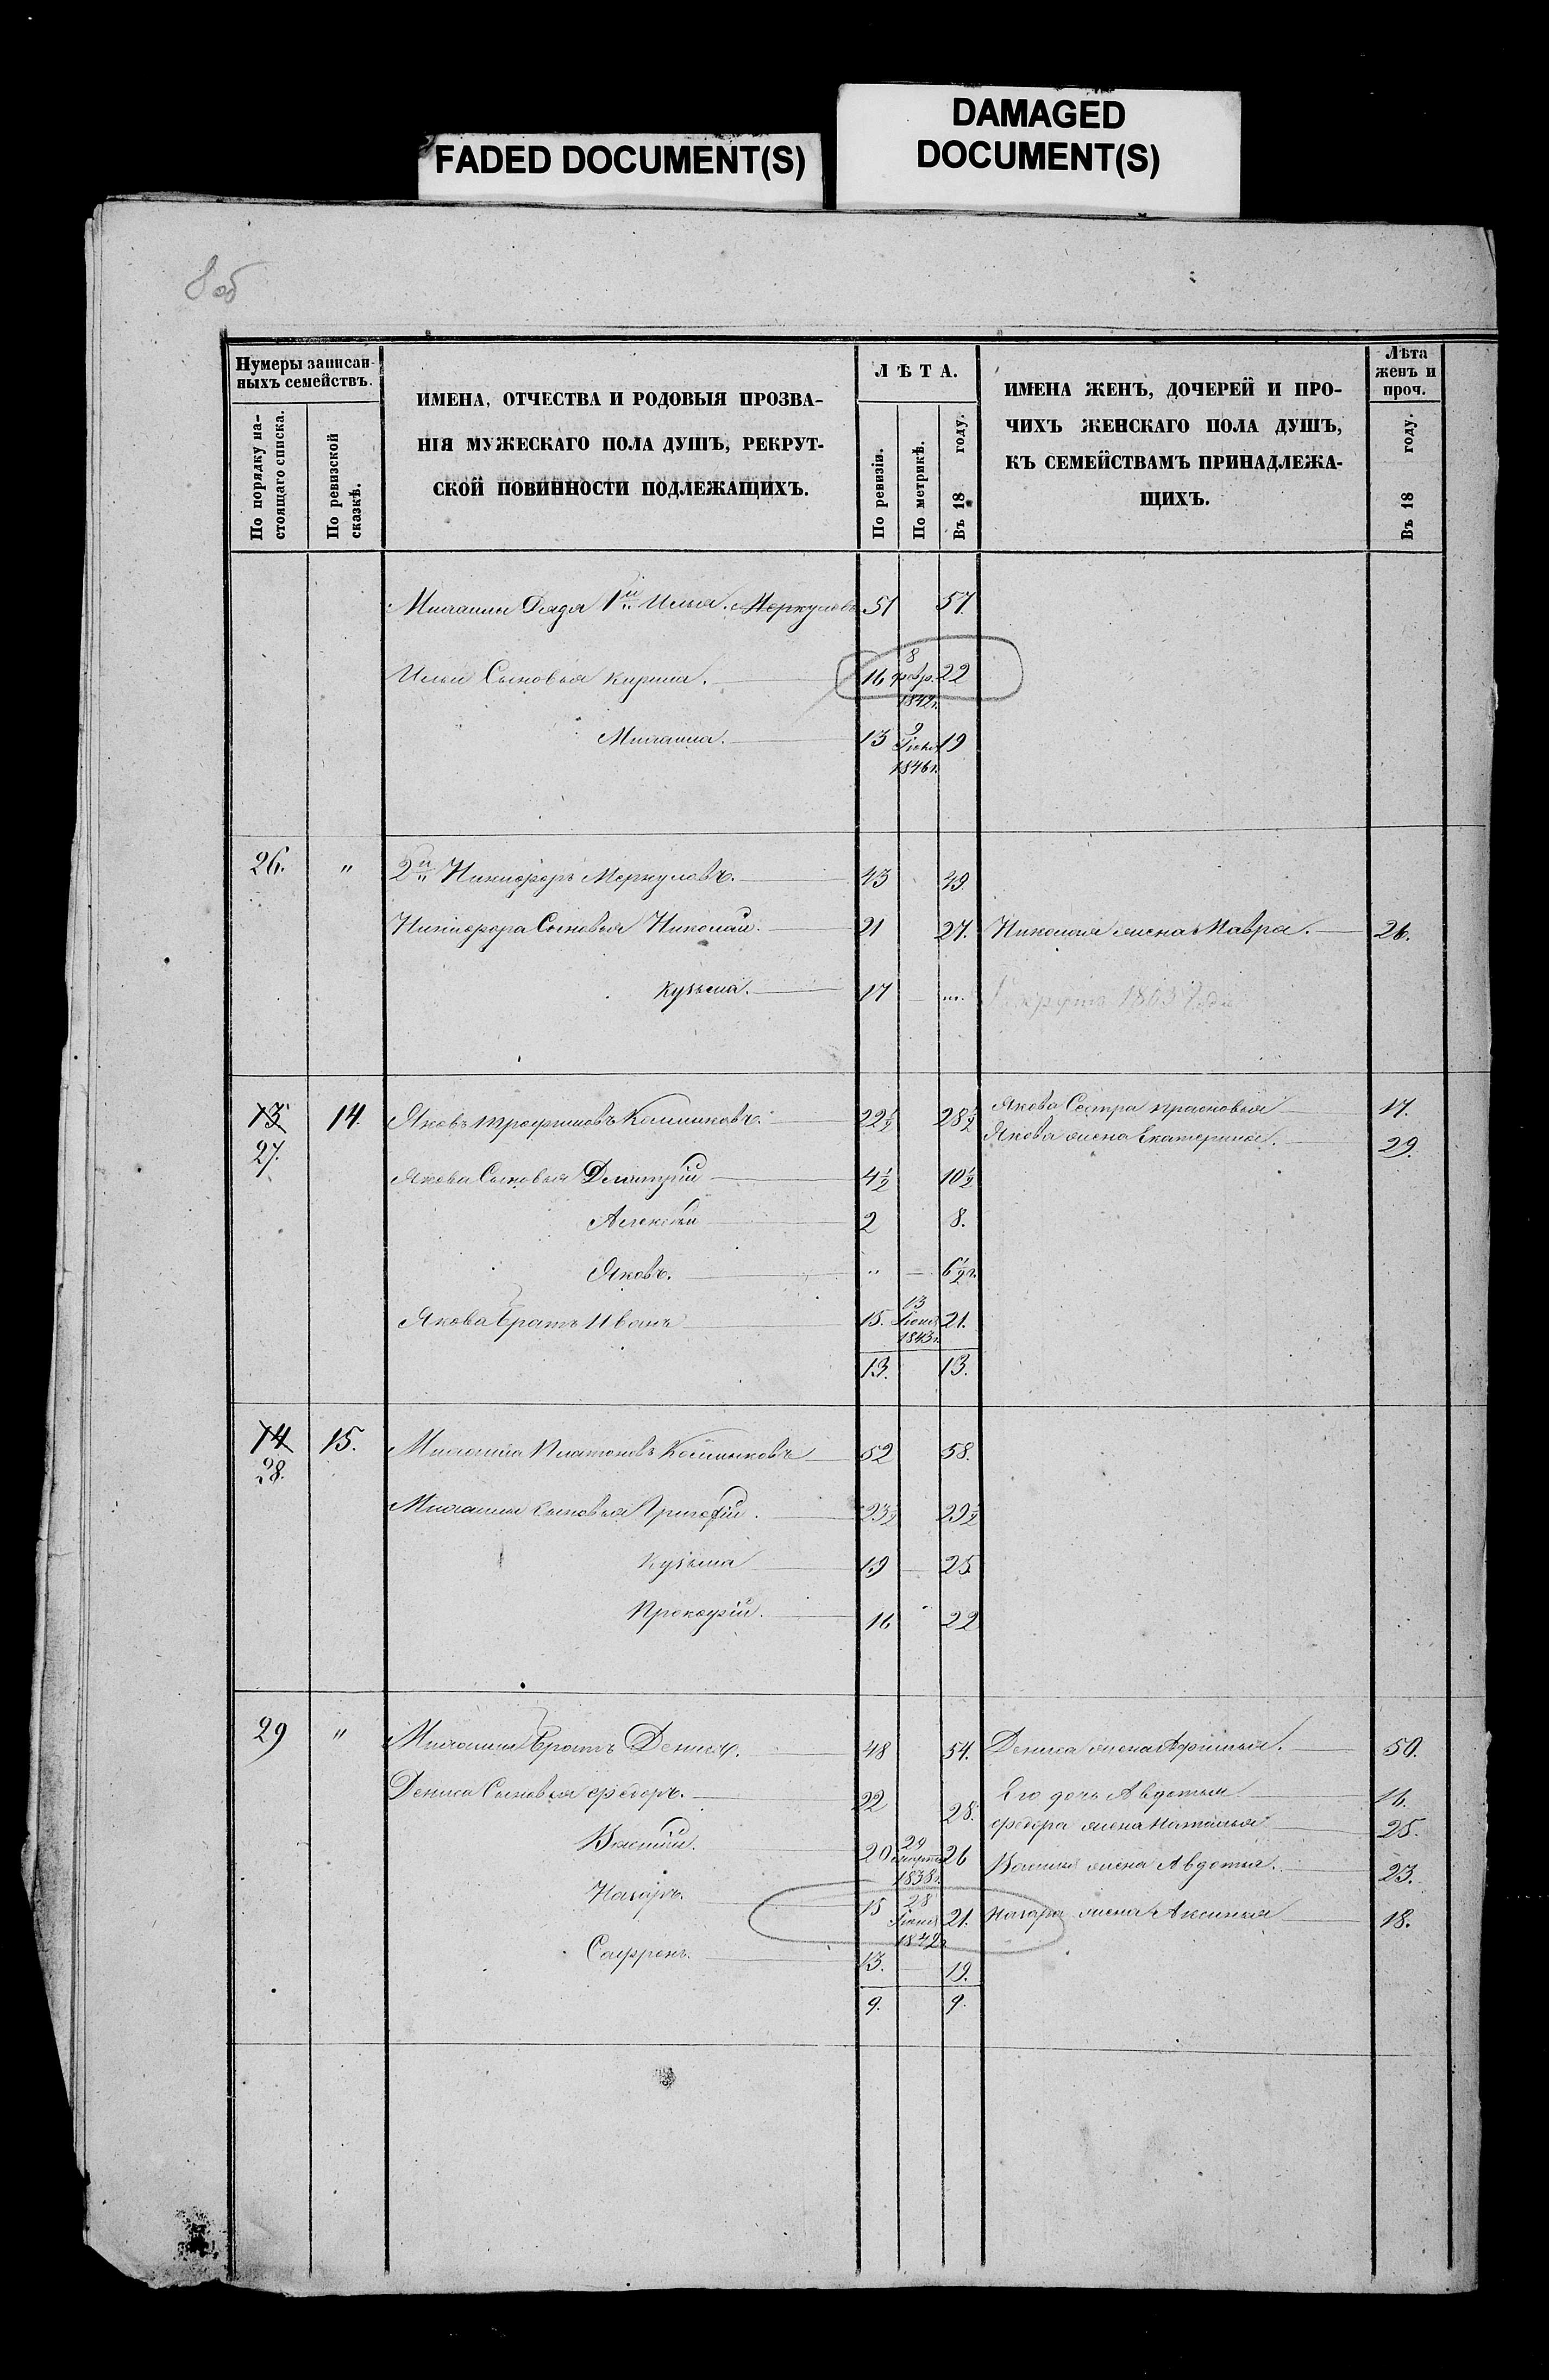 FADED DOCUMENT(S)
DAMAGED
DOCUMENT(S)
8 об
Нумеры записан-
ныхъ семействъ.
По порядку на-
стоящаго списка.
По ревизской
сказкѣ.
ИМЕНА, ОТЧЕСТВА И РОДОВЫЯ ПРОЗВА-
НІЯ МУЖЕСКАГО ПОЛА ДУШЪ, РЕКРУТ-
СКОЙ ПОВИННОСТИ ПОДЛЕЖАЩИХЪ.
ЛѢТА.
По ревизіи.
По метрикѣ.
Въ 18 году.
ИМЕНА ЖЕНЪ, ДОЧЕРЕЙ И ПРО-
ЧИХЪ ЖЕНСКАГО ПОЛА ДУШЪ,
КЪ СЕМЕЙСТВАМЪ ПРИНАДЛЕЖА-
ЩИХЪ.
Лѣта
женъ и
проч.
Въ 18 году.
Дядя 1й Илья Меркуловъ 51 57.
Ильи Сыновья Кирила. 16 8 февр. 1842г. 22
13 9 1846г. 19
26. " 2й Никифоръ Меркуловъ. 43 49
Никифора Сыновья Николай. 21 27. Николая жена Мавра. 26.
Кузьма. 17 — ... Рекрутъ 1863 года
13 14. Яковъ Трофимовъ 22½ 28½ Якова Сестра Прасковья 17.
27. Якова жена Екатерина. 29.
Якова Сыновья Дмитрій 4½ 10½
Алексѣй 2 8.
Яковъ. " — 6½ г.
Якова Братъ Иванъ 15. 13 1843г. 21.
13. 13.
14 15. Платоновъ 52 58.
28.
Сыновья Григорій. 23½ 29½
Кузьма 19 25
Прокофій. 16 22
29 " Братъ Денисъ. 48 54. Дениса жена Афимья. 50.
Дениса Сыновья Федоръ. 22 28. Его дочь Авдотья 16.
Федора жена Наталья 25.
Василій. 20 29 1838г. 26 Василія жена Авдотья. 23.
Назаръ. 15 28 1842г. 21. Назара жена Аксинья 18.
Сафронъ. 13. 19.
9. 9.